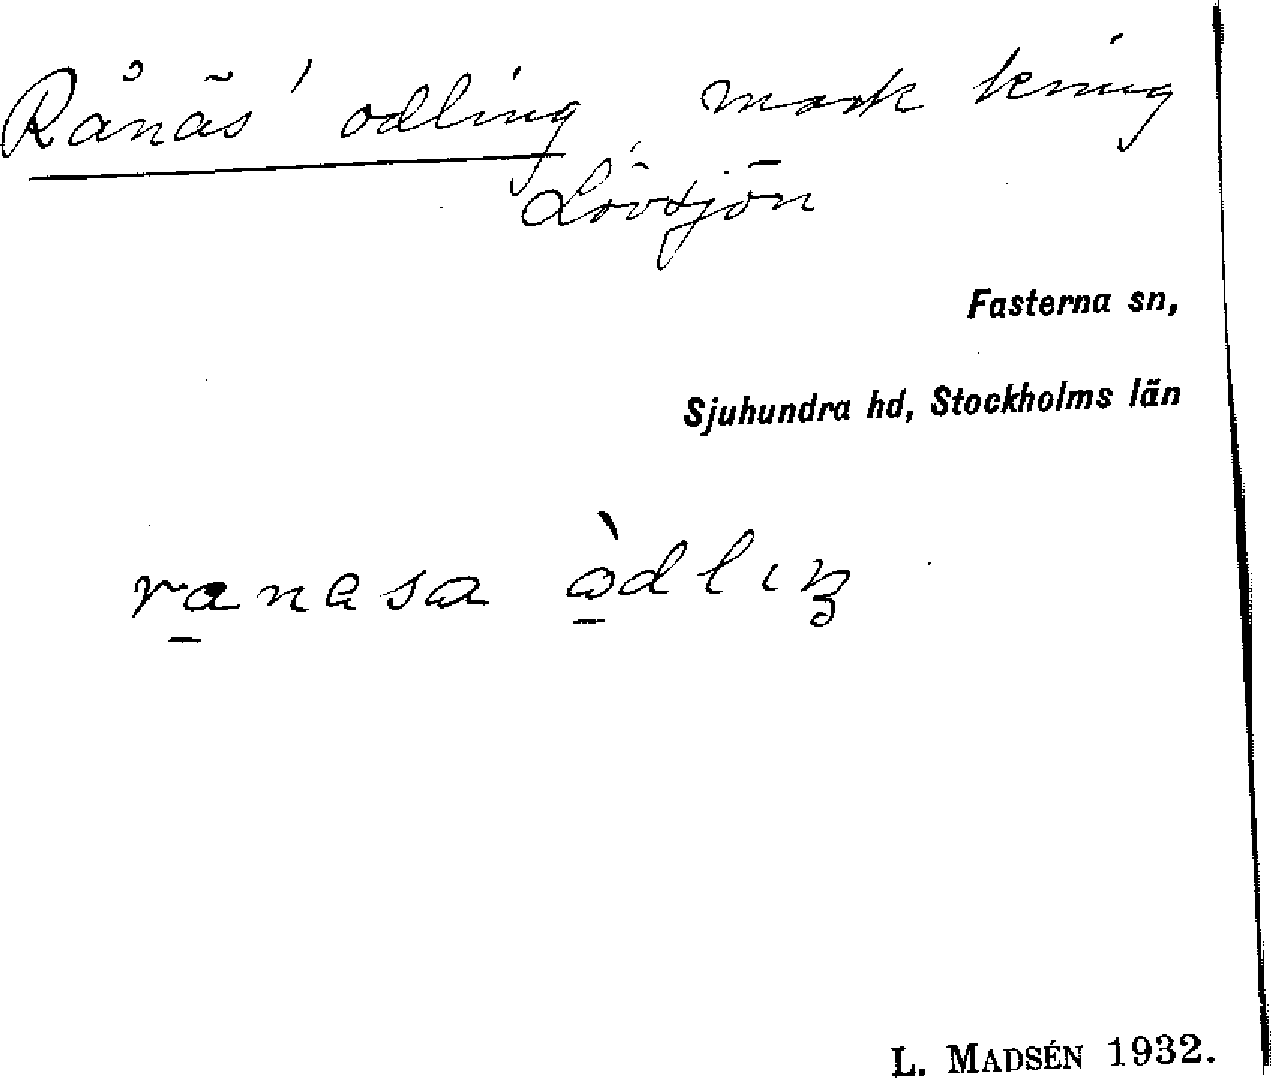 Rånäs' odling, mark kring
Lövsjön
Fasterna sn,
Sjuhundra hd, Stockholms län
ra̱nasa o̱̊̀dlıŋ
L. MADSÉN 1932.